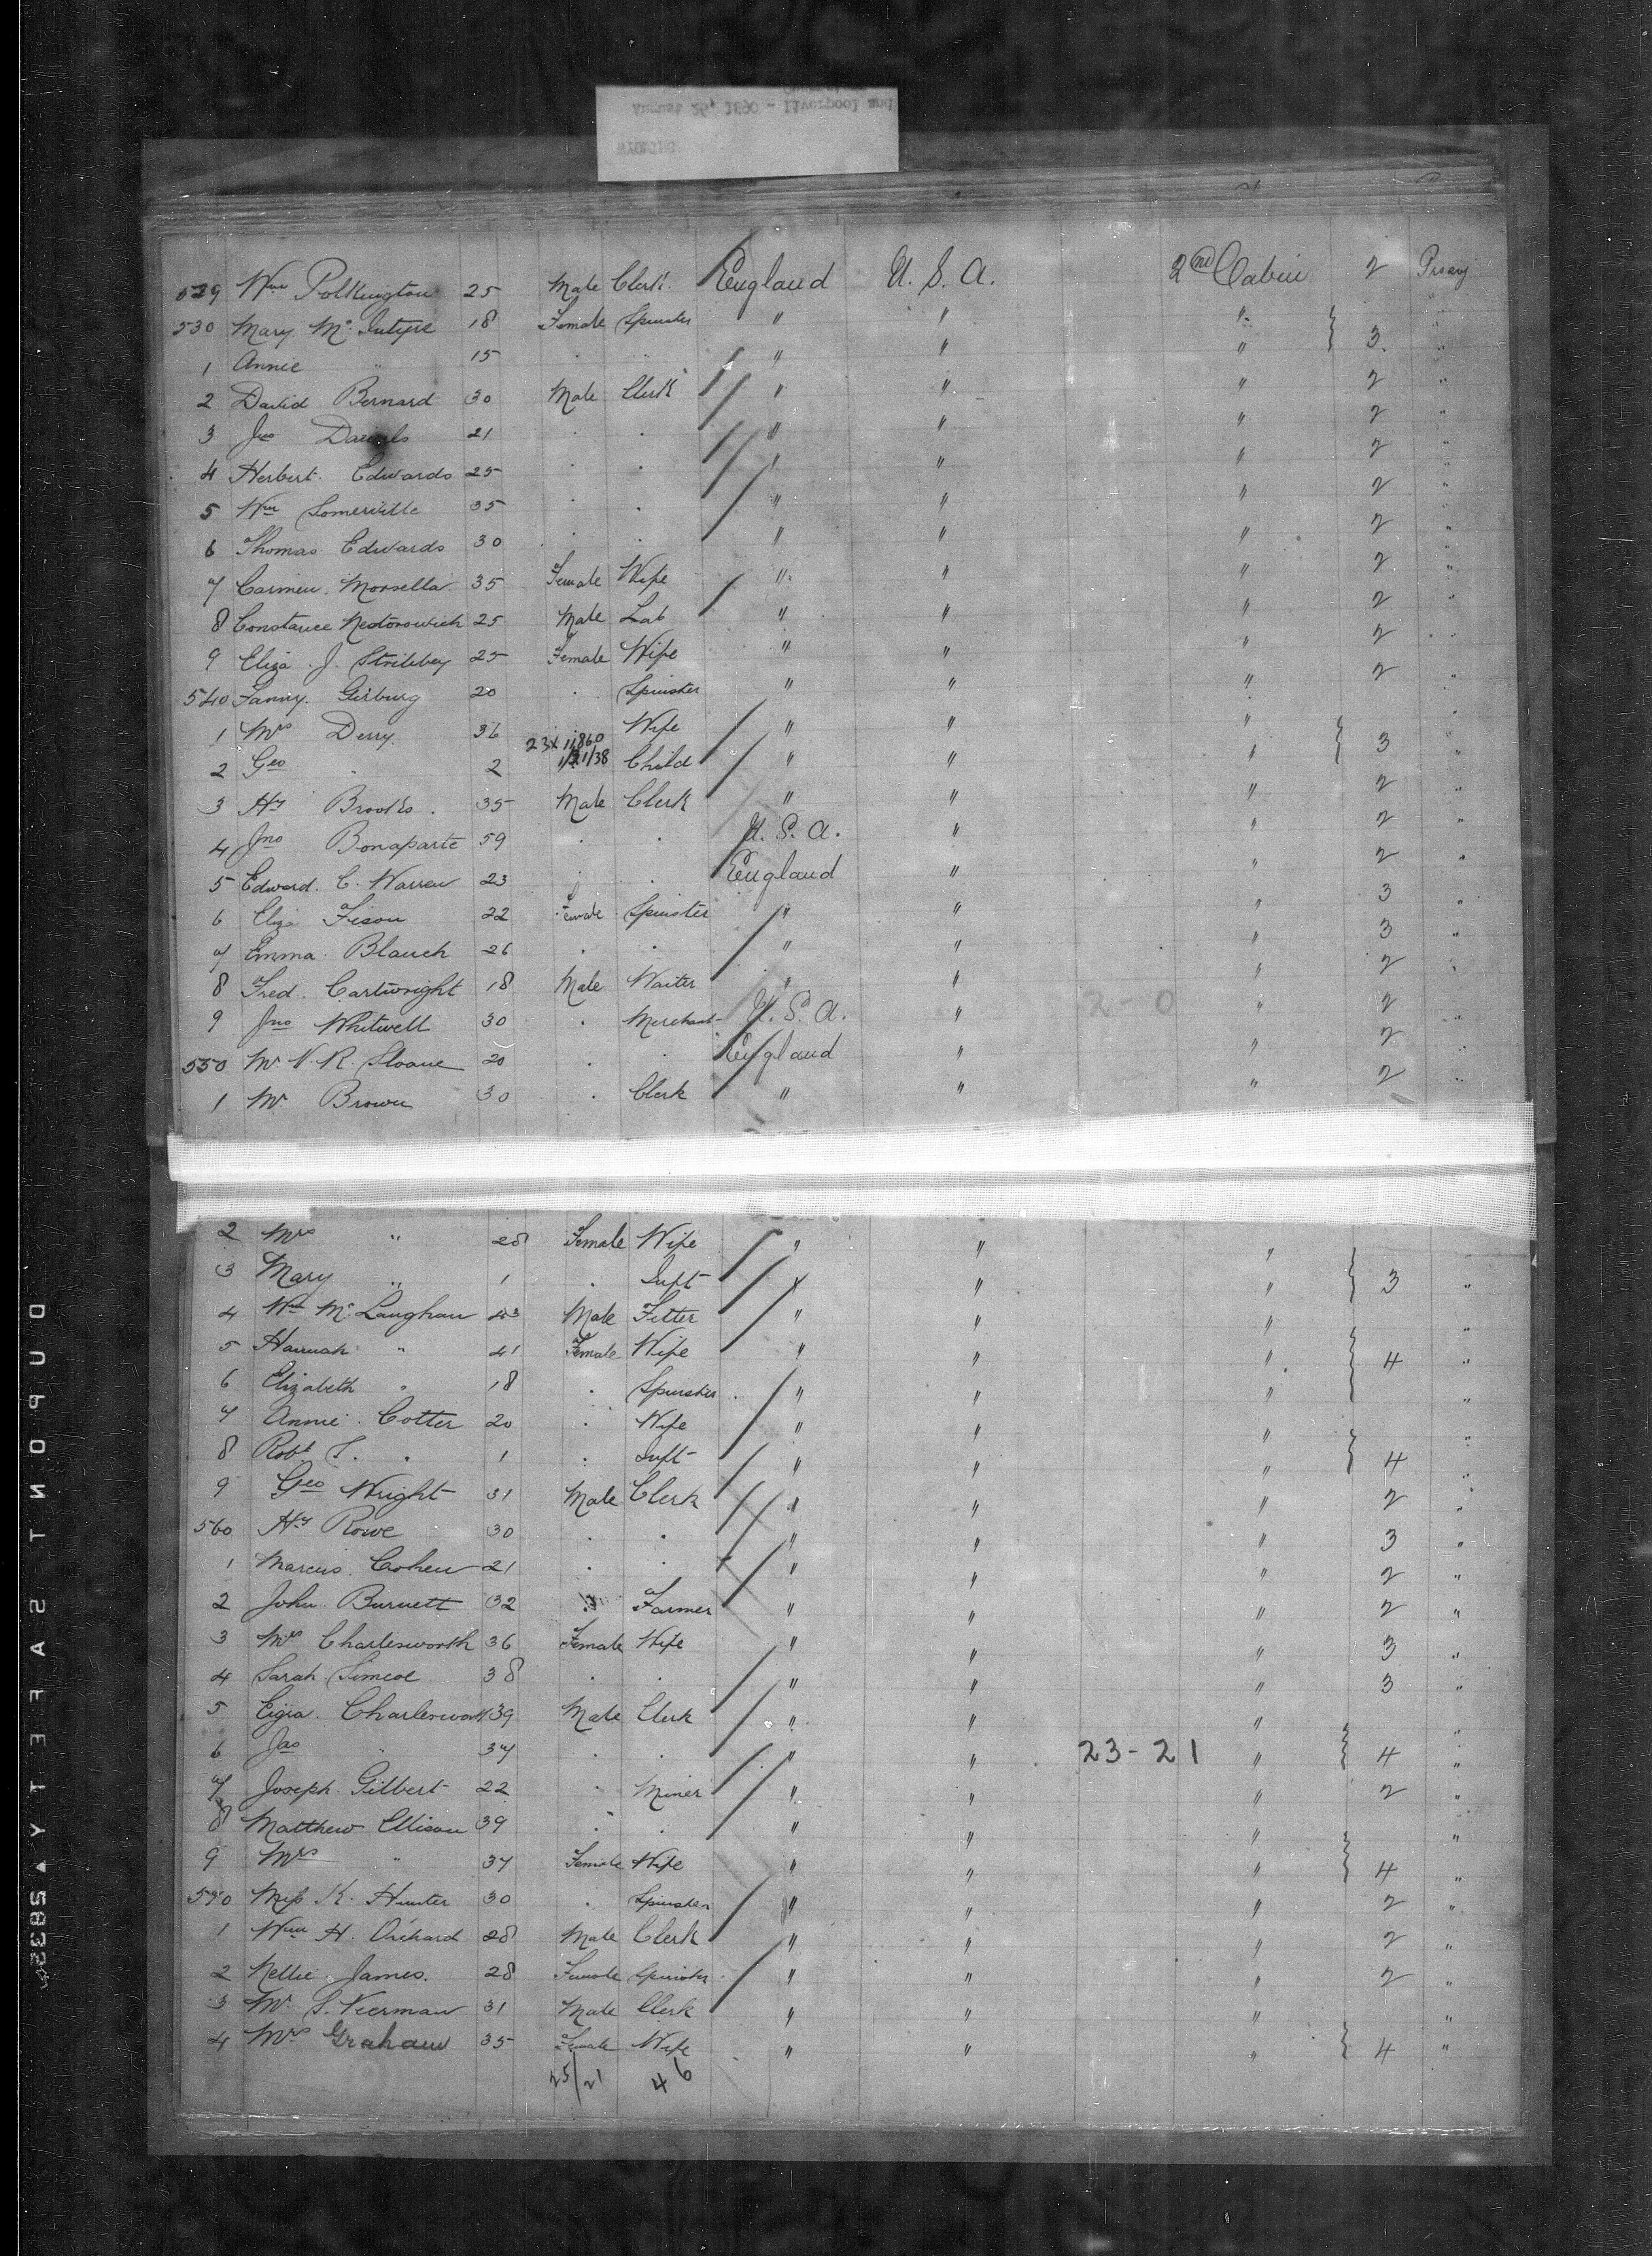 August 26, 1890 - Liverpool and
WYOMING
529 Wm Polkington 25 Male Clerk England U. S. A. 2nd Cabin 2
530 Mary Mc Intyre 18 Female Spinster " " " 3
1 Annie " 15 " " "
2 David Bernard 30 Male Clerk " " " 2
3 Jno 21 " " " 2
4 Herbert Edwards 25 " " " 2
5 Wm Somerville 35 " " " 2
6 Thomas Edwards 30 " " " 2
7 Carmen Morsella 35 Female Wife " " " 2
8 Constance Nestorowich 25 Male Lab " " " 2
9 Eliza J. 25 Female Wife " " " 2
540 Fanny Girburg 20 Spinster " " " 2
1 Mrs Derry 36 Wife " " "
23x 11860
1/21/38
2 Geo " 2 Child " " " 3
3 Hy Brooks 35 Male Clerk " " " 2
4 Jno Bonaparte 59 U. S. A. " " 2
5 Edward C. Warren 23 England " " 2
6 Eliza Fison 22 Female Spinster " " " 3
7 Emma Blanch 26 " " " 3
8 Fred Cartwright 18 Male Waiter " " " 2
9 Jno Whitwell 30 Merchant U. S. A. " 2-0 " 2
550 Mr N. R. Sloane 20 England " " 2
1 Mr Brown 30 Clerk " " " 2
2 Mrs " 28 Female Wife " " "
3 Mary " 1 Inft " " " 3 "
4 Wm Mc Laughan 43 Male Fitter " " " "
5 Hannah " 41 Female Wife " " " 4 "
6 Elizabeth " 18 Spinster " " " "
7 Annie Cotter 20 Wife " " " "
8 Robt S. " 1 Inft " " " 4 "
9 Geo Wright 31 Male Clerk " " " 2 "
560 Hy Rowe 30 " " " 3 "
1 Marcus Cohen 21 " " " 2 "
2 John Burnett 32 Farmer " " " 2 "
3 Mrs Charlesworth 36 Female Wife " " " 3 "
4 Sarah Simcoe 38 " " " 3 "
5 Charlesworth 39 Male Clerk " " " "
6 Jas " 37 " " 23-21 " 4 "
7 Joseph Gilbert 22 Miner " " " 2 "
8 Matthew Ellison 39 " " " "
9 Mrs " 37 Female Wife " " " 4 "
570 Miss K. Hunter 30 Spinster " " " 2 "
1 Wm H. Orchard 28 Male Clerk " " " 2 "
2 Nellie James 28 Female Spinster " " " 2 "
3 Mr S. Vierman 31 Male Clerk " " " "
4 Mrs Graham 35 Female Wife " " " 4 "
25/21 46
DUPONT SAFETY